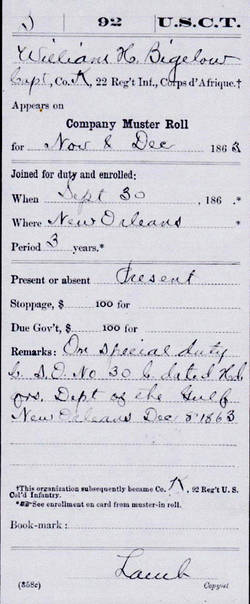 92 U.S.C.T.
William H. Bigelow
Capt, Co. K, 22 Reg't Inf., Corps d'Afrique.†
Appears on
Company Muster Roll
for Nov & Dec 1863
Joined for duty and enrolled:
When Sept 30, 186 .*
Where New Orleans *
Period 3 years.*
Present or absent Present
Stoppage, $ 100 for
Due Gov't, $ 100 for
Remarks: On special duty
S.O. No 30 dated Hd
qrs. Dept of the Gulf
New Orleans Dec 8 1863
†This organization subsequently became Co. K, 92 Reg't U. S.
Col'd Infantry.
*See enrollment on card from muster-in roll.
Book-mark:
Lamb
(858c) Copyist.